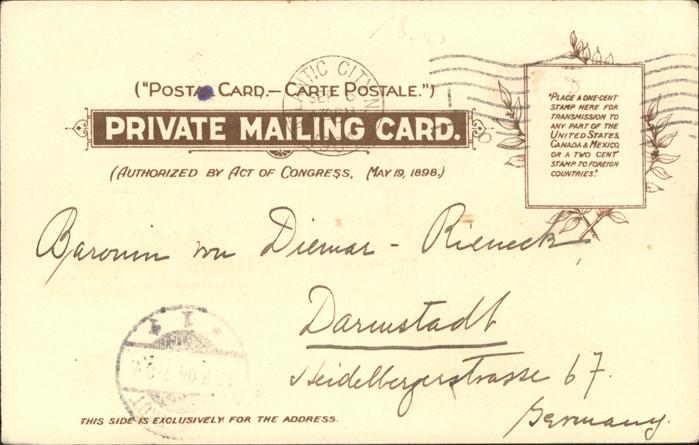 ("POSTAL CARD.—CARTE POSTALE.")
PRIVATE MAILING CARD.
(AUTHORIZED BY ACT OF CONGRESS, MAY 19, 1898.)
"PLACE A ONE-CENT
STAMP HERE FOR
TRANSMISSION TO
ANY PART OF THE
UNITED STATES,
CANADA & MEXICO,
OR A TWO CENT
STAMP TO FOREIGN
COUNTRIES."
NTIC CITY N
Baronin von Diemar - Rieneck,
Darmstadt
Heidelbergerstrasse 67.
Germany.
THIS SIDE IS EXCLUSIVELY FOR THE ADDRESS.